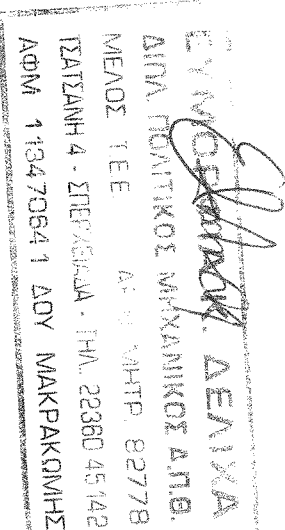 ΔΕΛΙΧΑ
ΔΙΠΛ. ΠΟΛΙΤΙΚΟΣ ΜΗΧΑΝΙΚΟΣ Δ.Π.Θ
ΜΕΛΟΣ ΤΕΕ ΜΗΤΡ. 82778
ΤΣΑΤΣΑΝΗ 4 - ΤΗΛ. 22360 45142
ΑΦΜ 113470641 ΔΟΥ ΜΑΚΡΑΚΩΜΗΣ